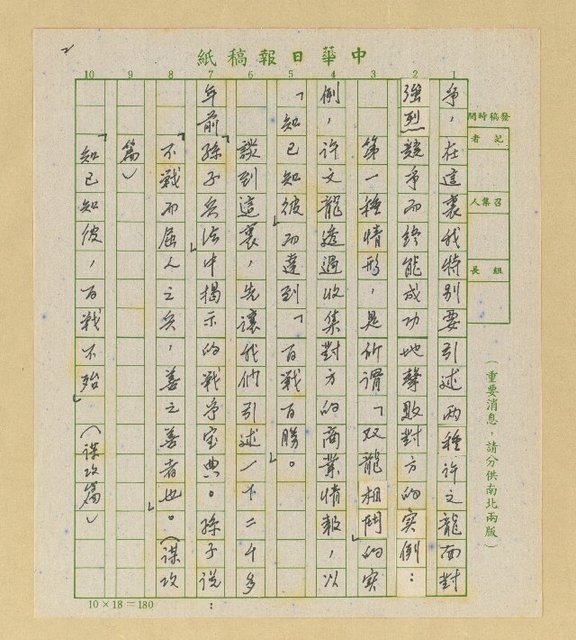 2
中華日報稿紙
1 2 3 4 5 6 7 8 9 10
發稿時間
記者
召集人
組長
(重要消息,請分供南北兩版)
爭,在這裏我特別要引述兩種許文龍面對
強烈競爭而終能成功地擊敗對方的實例:
第一種情形,是所謂「双龍相鬥」的實
例,許文龍透過收集對方的商業情報,以
「知己知彼」而達到「百戰百勝」。
談到這裏,先讓我們引述一下二千多
年前「孫子兵法」中揭示的戰爭宝典。孫子說:
「不戰而屈人之兵,善之善者也。」(謀攻
篇)
「知己知彼,百戰不殆」(謀攻篇)
10×18=180